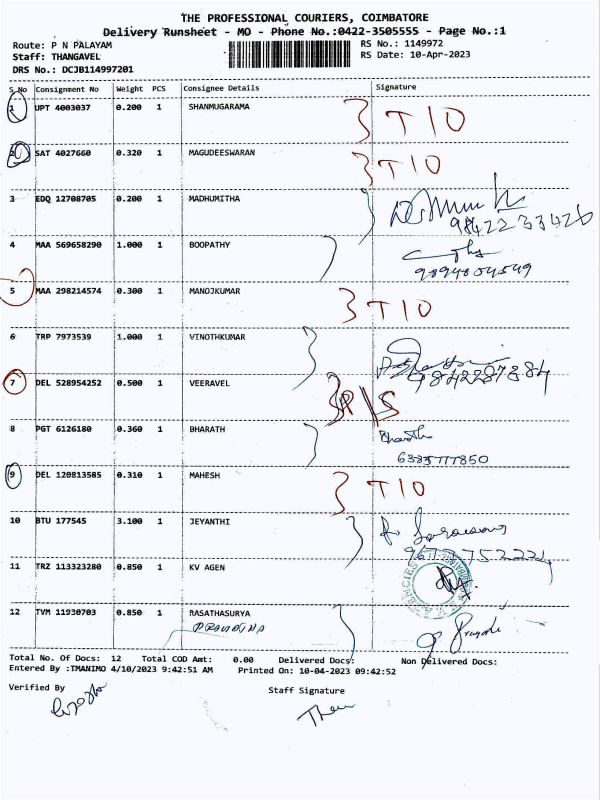 THE PROFESSIONAL COURIERS, COIMBATORE
Delivery Runsheet - MO - Phone No.:0422-3505555 - Page No.:1
Route: P N PALAYAM RS No.: 1149972
Staff: THANGAVEL RS Date: 10-Apr-2023
DRS No.: DCJB114997201
S No Consignment No Weight PCS Consignee Details Signature
1 UPT 4003037 0.200 1 SHANMUGARAMA T I O
2 SAT 4027660 0.320 1 MAGUDEESWARAN T I O
3 EDQ 12708705 0.200 1 MADHUMITHA
98422 33426
4 MAA 569658290 1.000 1 BOOPATHY
9894804549
5 MAA 298214574 0.300 1 MANOJKUMAR T I O
6 TRP 7973539 1.000 1 VINOTHKUMAR
9842287384
7 DEL 528954252 0.500 1 VEERAVEL
8 PGT 6126180 0.360 1 BHARATH
6385777850
9 DEL 120813585 0.310 1 MAHESH T I O
10 BTU 177545 3.100 1 JEYANTHI
11 TRZ 113323280 0.850 1 KV AGEN
12 TVM 11930703 0.850 1 RASATHASURYA
Total No. Of Docs: 12 Total COD Amt: 0.00 Delivered Docs: Non Delivered Docs:
Entered By :TMANIMO 4/10/2023 9:42:51 AM Printed On: 10-04-2023 09:42:52
Verified By Staff Signature